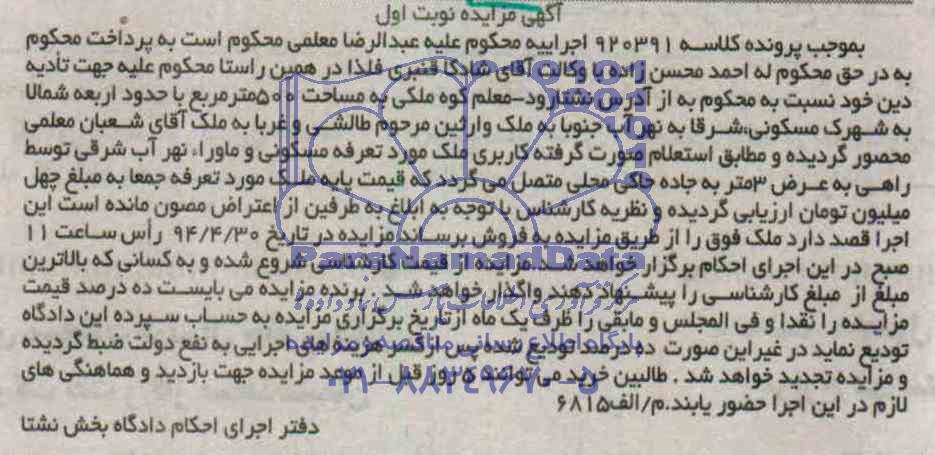 آگهی مزایده نوبت اول
بموجب پرونده کلاسه ۹۲۰۳۹۱ اجراییه محکوم علیه عبدالرضا معلمی محکوم است به پرداخت محکوم
به در حق محکوم له احمد محسن زاده با وکالت آقای شادکا قنبری فلذا در همین راستا محکوم علیه جهت تأدیه
دین خود نسبت به محکوم به از آدرس نشتارود-معلم کوه ملکی به مساحت ۵۰۰مترمربع با حدود اربعه شمالا
به شهرک مسکونی،شرقا به نهر آب جنوبا به ملک وارثین مرحوم طالشی و غربا به ملک آقای شعبان معلمی
محصور گردیده و مطابق استعلام صورت گرفته کاربری ملک مورد تعرفه مسکونی و ماوراء نهر آب شرقی توسط
راهی به عرض ۳متر به جاده خاکی محلی متصل می گردد که قیمت پایه ملک مورد تعرفه جمعا به مبلغ چهل
میلیون تومان ارزیابی گردیده و نظریه کارشناس با توجه به ابلاغ به طرفین از اعتراض مصون مانده است این
اجرا قصد دارد ملک فوق را از طریق مزایده به فروش برساند مزایده در تاریخ ۹۴/۴/۳۰ رأس ساعت ۱۱
صبح در این اجرای احکام برگزار خواهد شد.مزایده از قیمت کارشناسی شروع شده و به کسانی که بالاترین
مبلغ از مبلغ کارشناسی را پیشنهاد دهند واگذار خواهد شد . برنده مزایده می بایست ده درصد قیمت
مزایده را نقدا و فی المجلس و مابقی را ظرف یک ماه از تاریخ برگزاری مزایده به حساب سپرده این دادگاه
تودیع نماید در غیر این صورت ده درصد تودیع شده پس از کسر هزینه های اجرایی به نفع دولت ضبط گردیده
و مزایده تجدید خواهد شد . طالبین خرید می توانند ۵ روز قبل از موعد مزایده جهت بازدید و هماهنگی های
لازم در این اجرا حضور یابند.م/الف۶۸۱۵
دفتر اجرای احکام دادگاه بخش نشتا
ParsNamadData
پایگاه اطلاع رسانی مناقصه و مزایده
۰۲۱-۸۸۳۴۹۶۷۰-۵